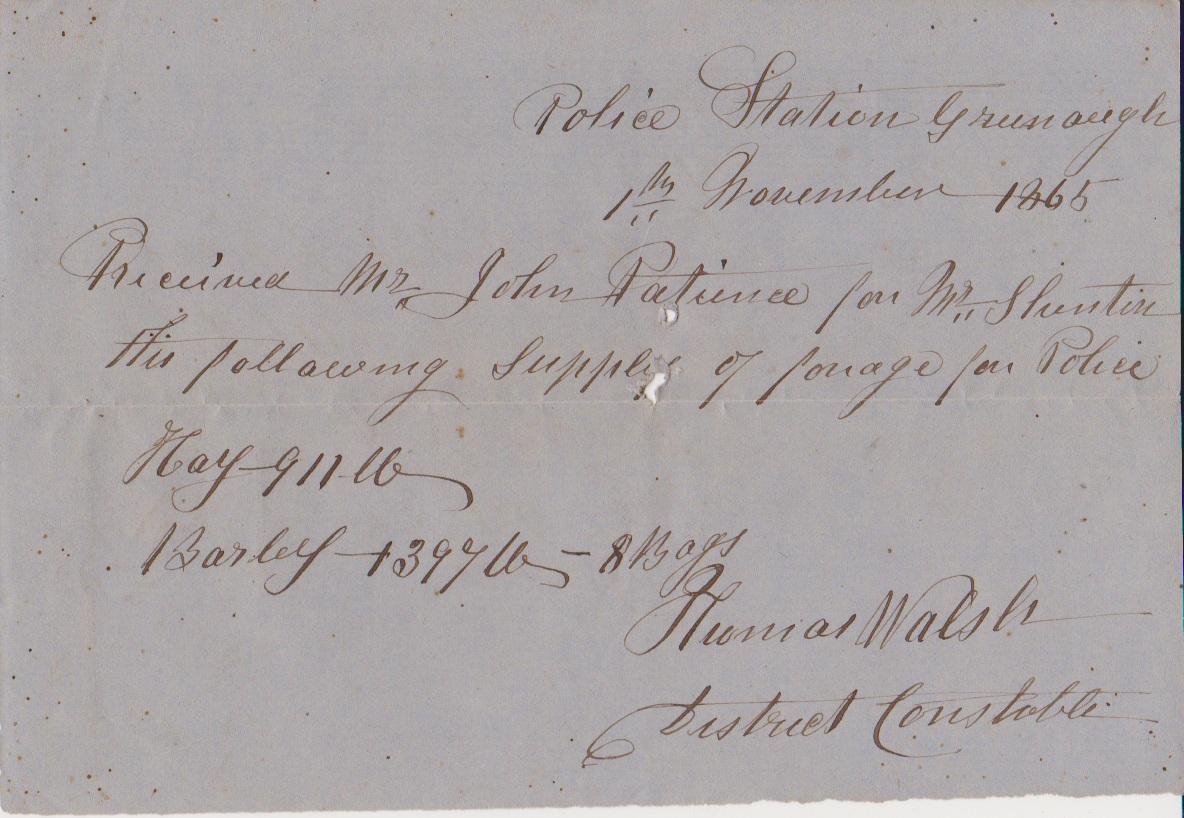 Police Station Greenaugh
1th November 1865
Received Mr John Patience for Mr Shentin
the following Supply of forage for Police
Hay 911 lb
Barley 1397 lb - 8 Bags
Thomas Walsh
District Constable